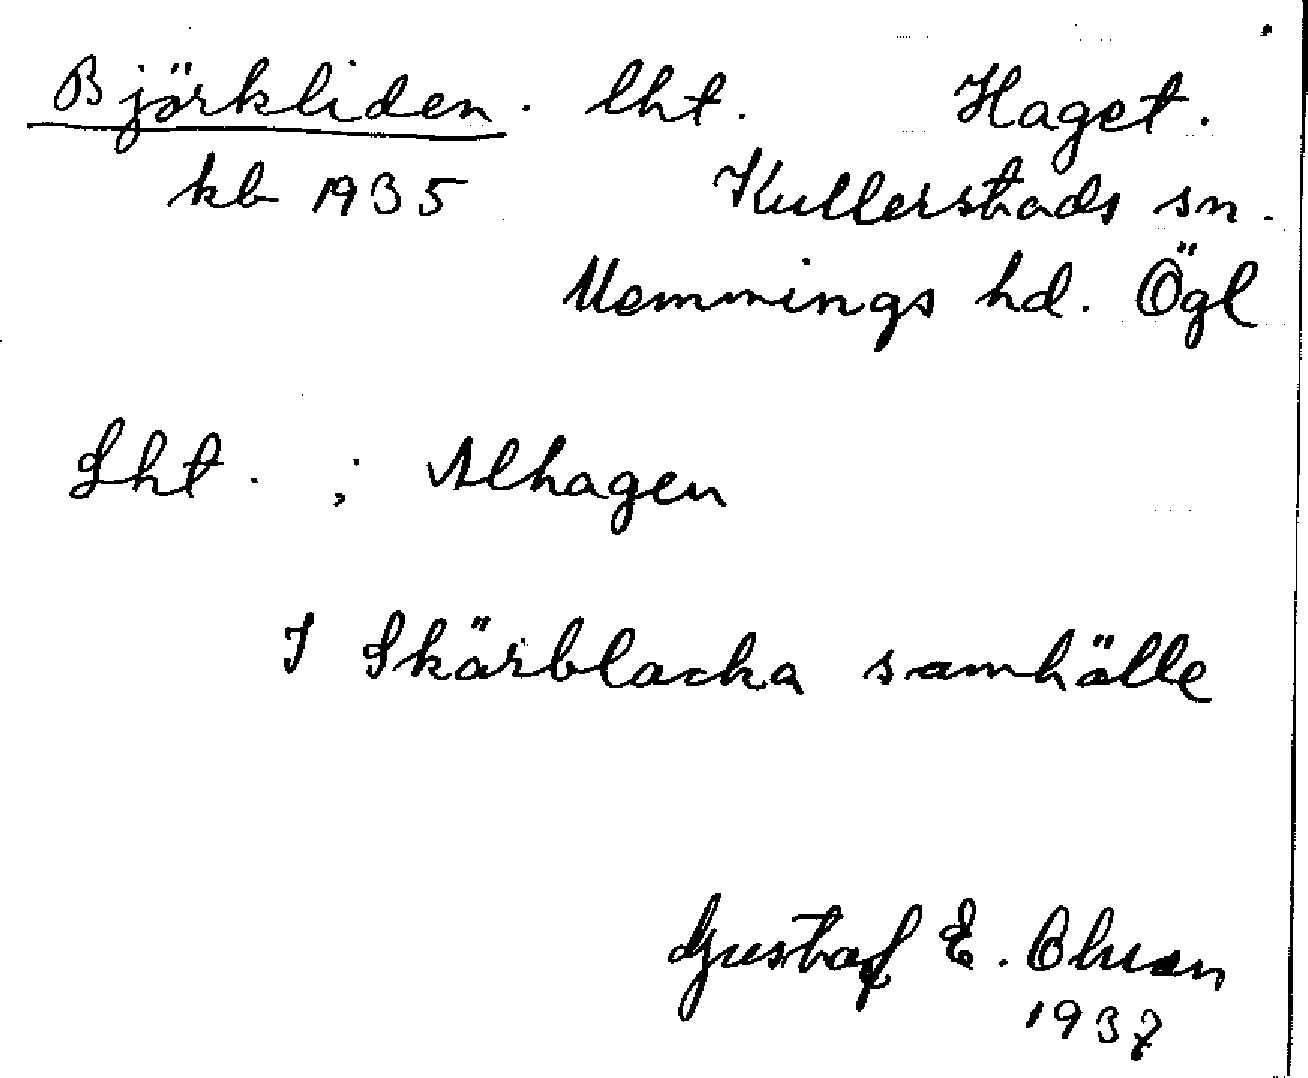 Björkliden. lht. Haget.
kb 1935 Kullerstads sn.
Memmings hd. Ögl
Lht. ; Alhagen
I Skärblacka samhälle
Gustaf E.
1937